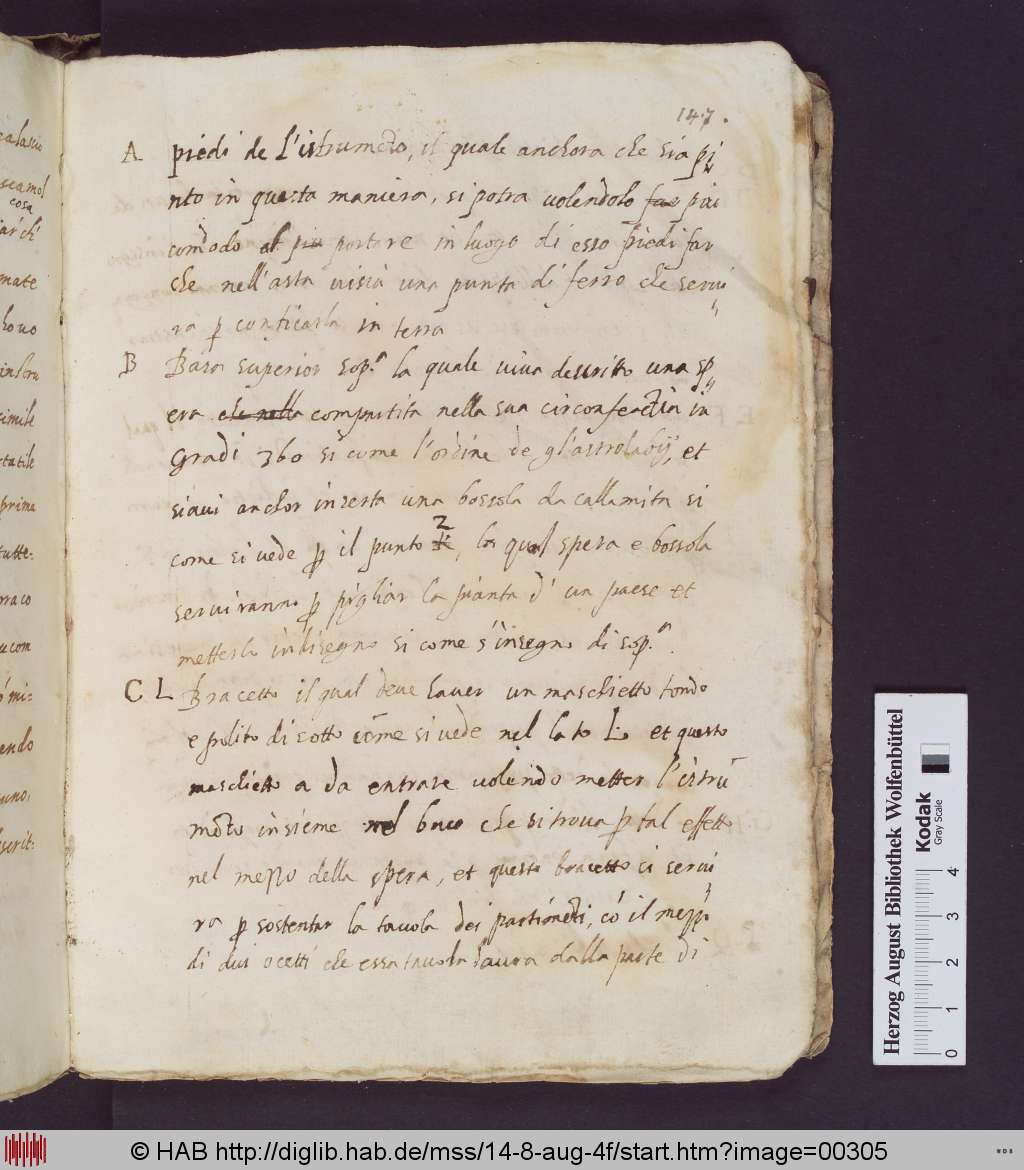 147.
A piedi de l'istrumẽto, il quale anchora che sia pi
nto in questa maniera, si potra volendolo far piu
comodo al piu portare in luogo di esso piedi far
che nell'asta visia una punta di ferro che servi
ra p conficarla in terra
B Basa superior sopᵃ la quale viva descritto una sp
era che nella compartita nella sua circonferẽtia in
Gradi 360 si come l'ordine de gl'astrolabij, et
siavi anchor inserta una bossola da callamita si
2
come si vede p il punto, la qual spera e bossola
serviranno p pigliar la pianta d'un paese et
metterla indisegno si come s'insegno di sopᵃ.
C L Bracetto il qual deve haver un maschietto tondo
e polito di sotto come si vede nel lato L et questo
maschietto a da entrare volendo metter l'istrũ
mẽto insieme nel buco che si trova p tal effetto
nel mezzo della spera, et questo bracetto ci servi
ra p sostentar la tavola dei partimẽti, cõ il mezzo
di dui ocetti che essa tavola havra dalla parte di
mate
simile
prima
tutte:
endo
uno,
Herzog August Bibliothek Wolfenbüttel
Kodak
Gray Scale
0 1 2 3 4
© HAB http://diglib.hab.de/mss/14-8-aug-4f/start.htm?image=00305